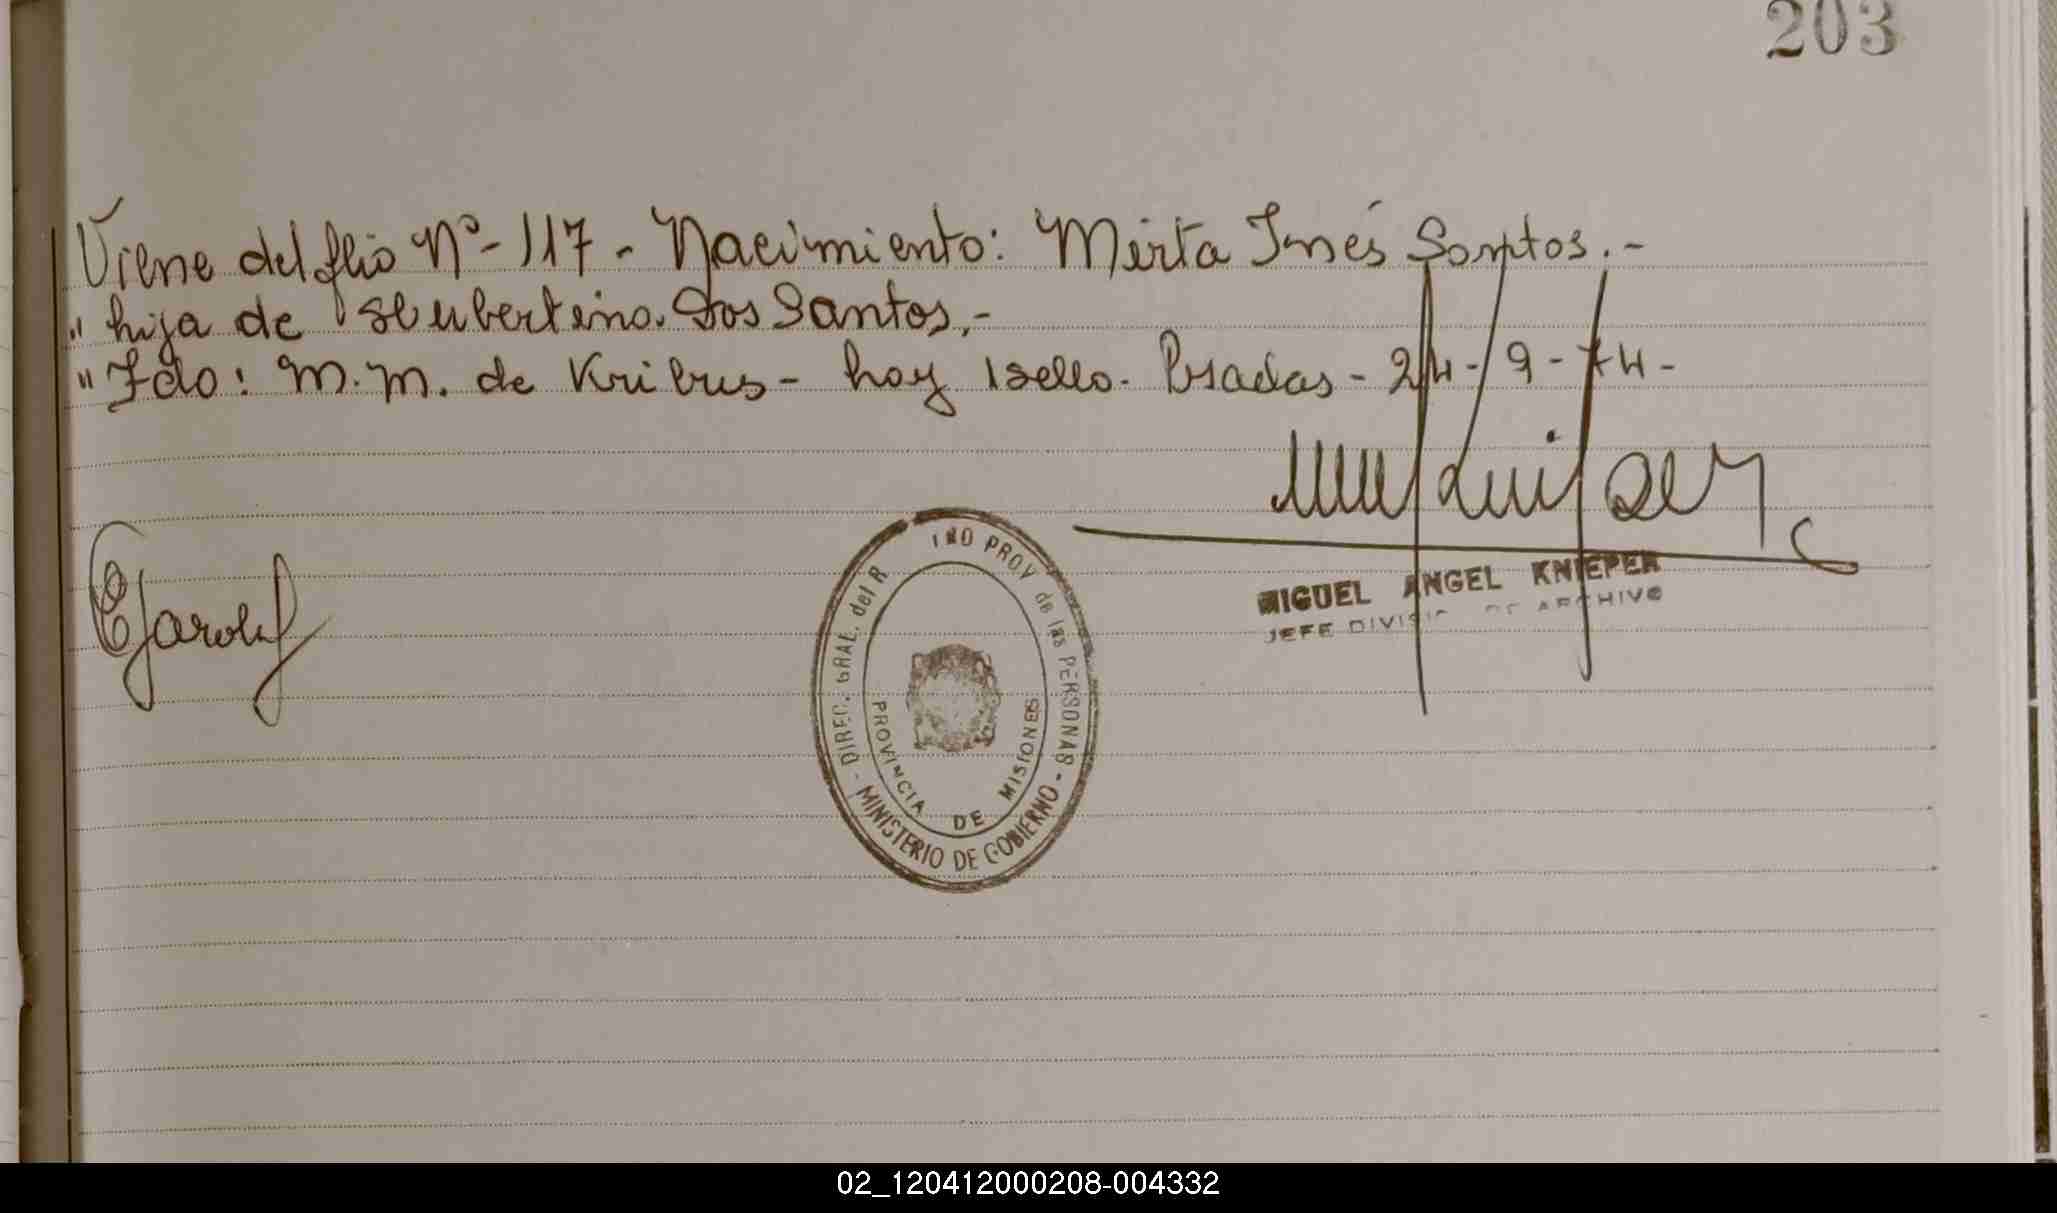 203
Viene del flio Nº-117 - Nacimiento: Mirta Inés Santos.-
" hija de Hubertino Dos Santos.-
" Fdo: M.M. de Kribus - hoy 1 sello. Posadas - 24-9-74-
MIGUEL ANGEL KNIEPER
JEFE DIVISION DE ARCHIVO
DIREC. GRAL. del R PROV de las PERSONAS - MINISTERIO DE GOBIERNO -
PROVINCIA DE MISIONES
02_120412000208-004332